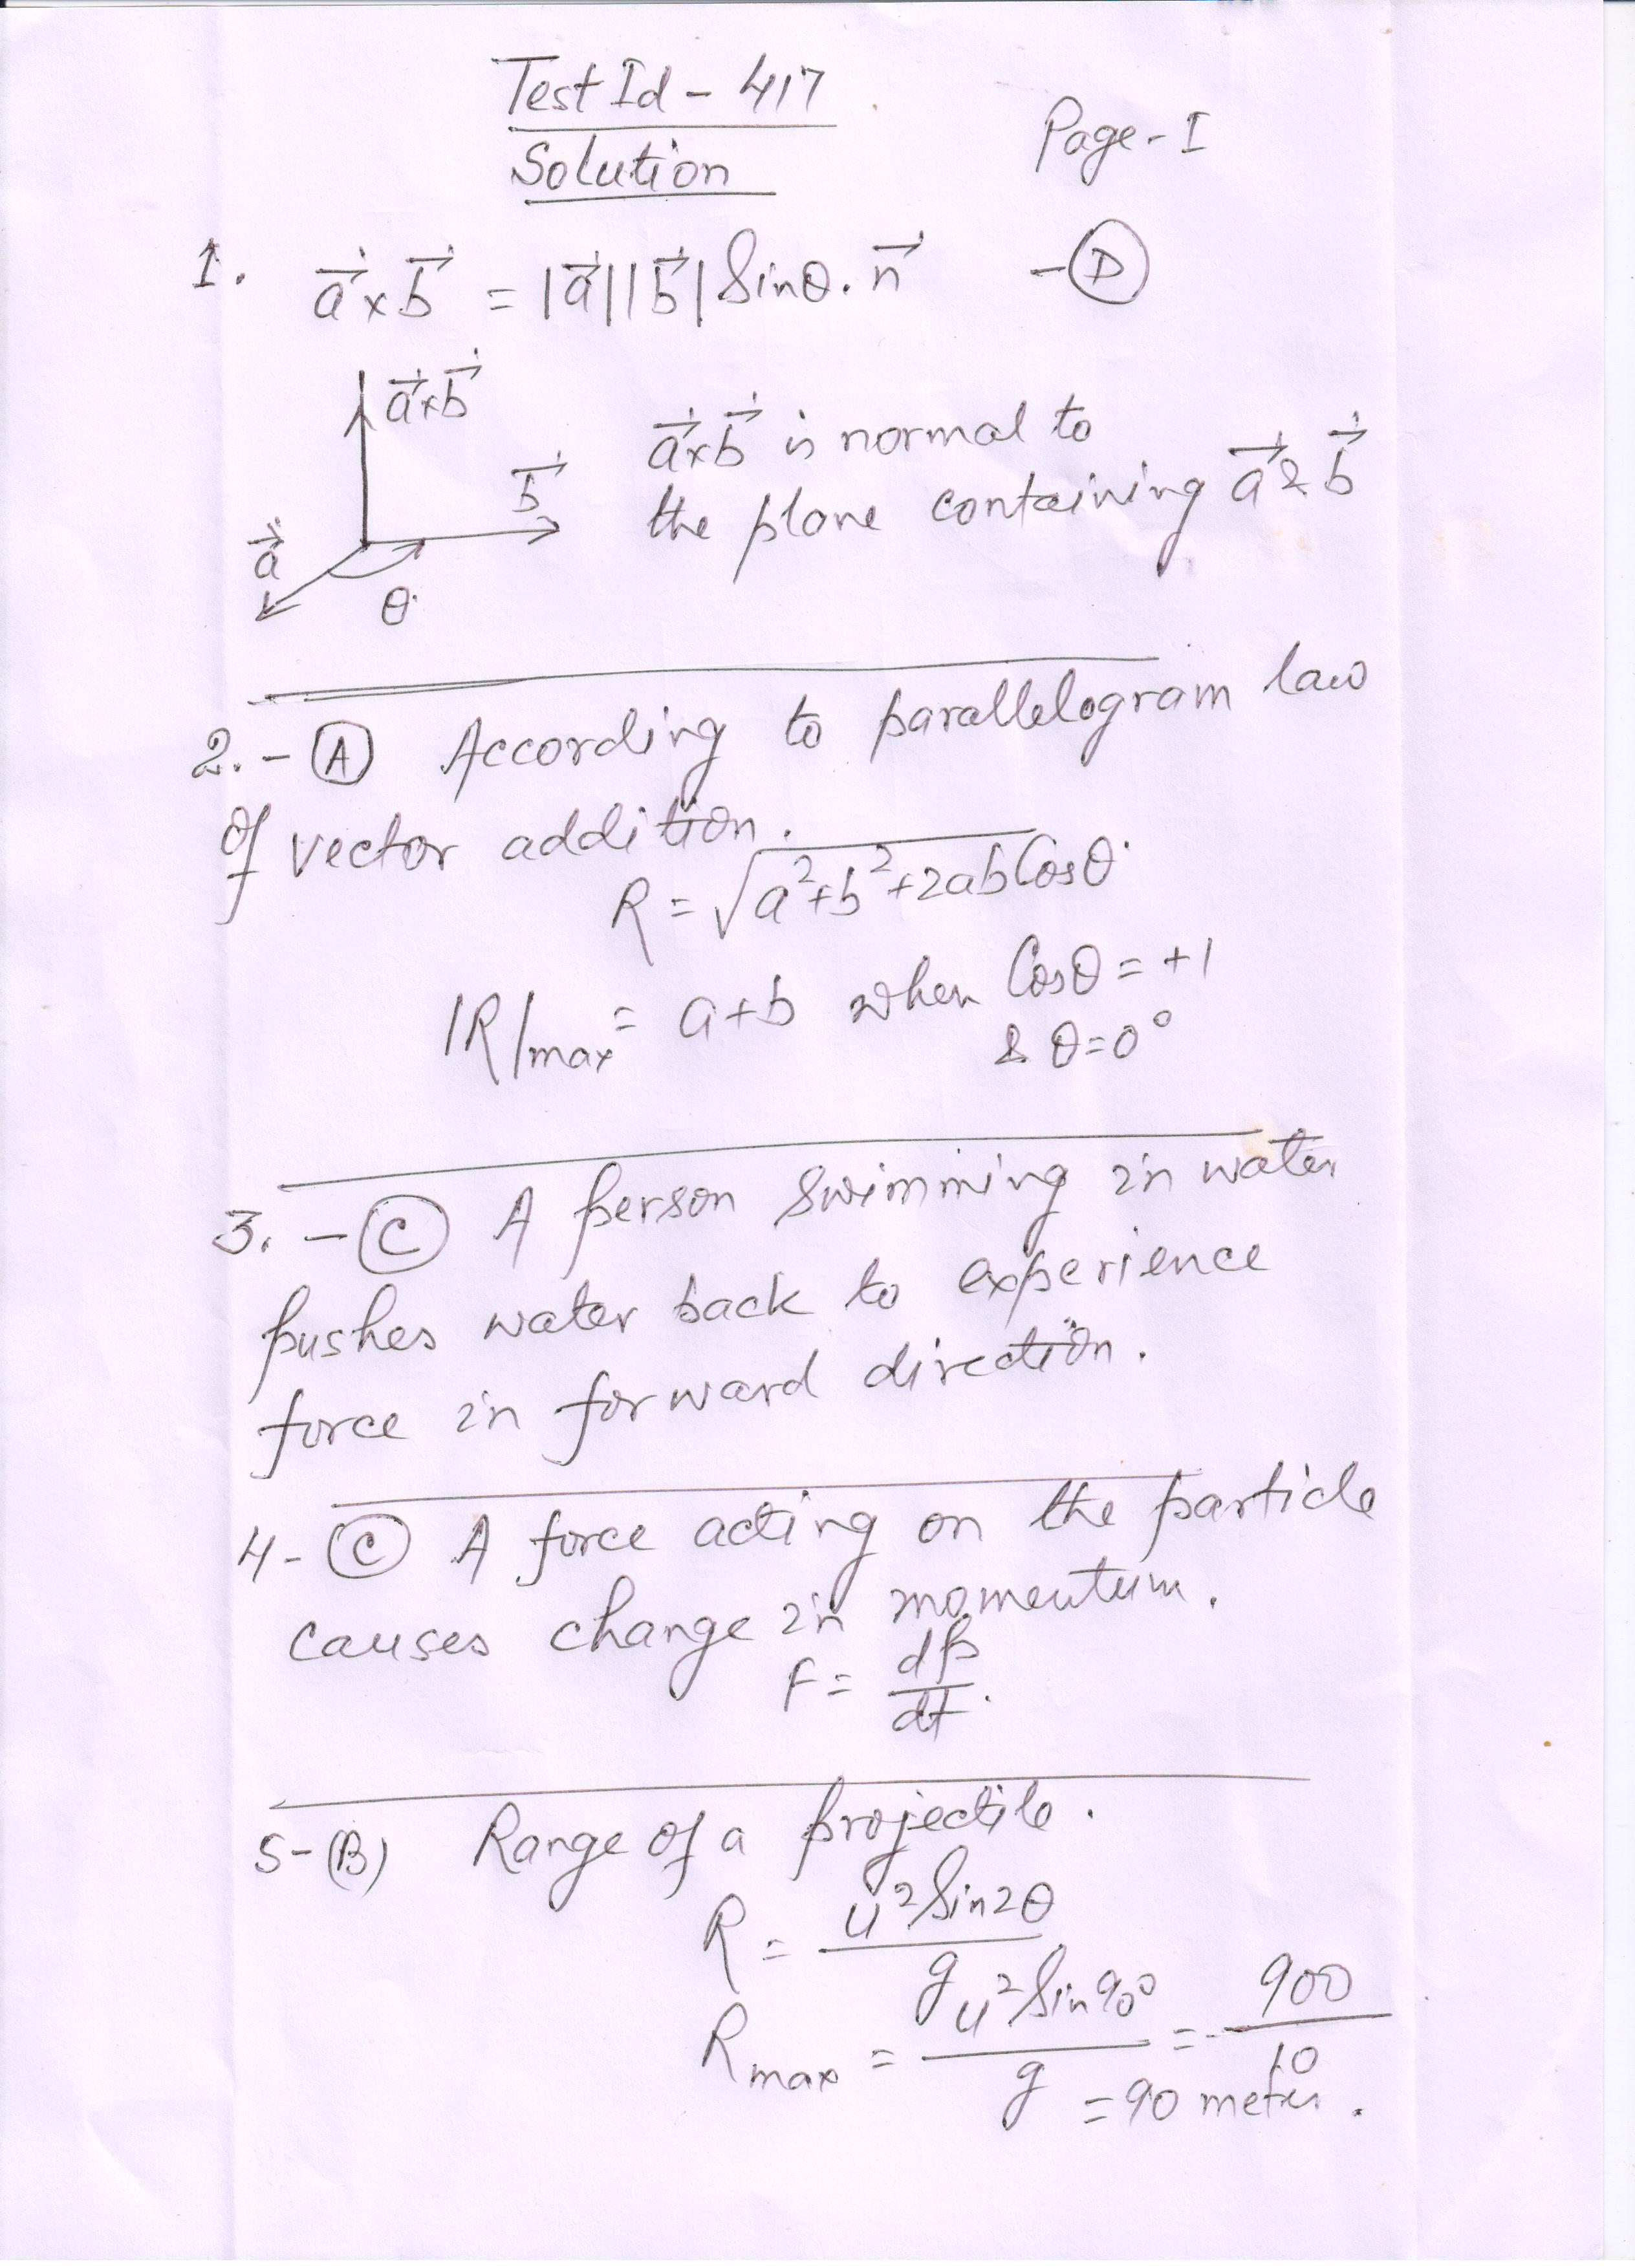 Test Id - 417
Solution
Page - I
1. a⃗ × b⃗ = |a⃗||b⃗| Sinθ. n⃗ - (D)
a⃗×b⃗
b⃗
a⃗
θ
a⃗×b⃗ is normal to
the plane containing a⃗ & b⃗
2. - (A) According to parallelogram law
of vector addition.
R = √(a²+b²+2ab Cosθ)
|R|max = a+b when Cosθ = +1
& θ=0°
3. - (C) A person Swimming in water
pushes water back to experience
force in forward direction.
4 - (C) A force acting on the particle
causes change in momentum.
F = dp/dt.
5 - (B) Range of a projectile.
R = u² Sin2θ / g
Rmax = u² Sin90° / g = 900 / 10
= 90 meter.